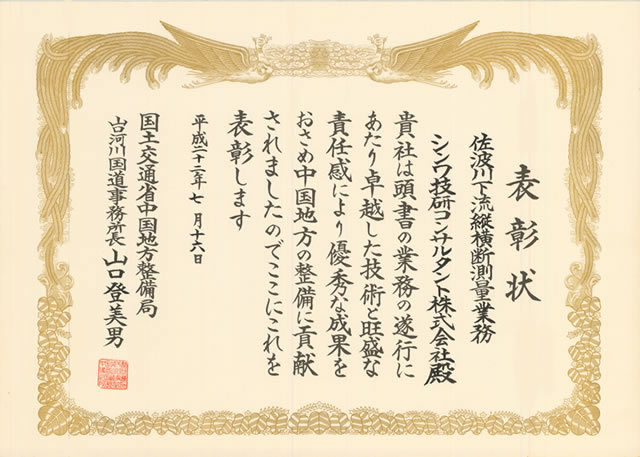 表彰状
佐波川下流縦横断測量業務
シンワ技研コンサルタント株式会社殿
貴社は頭書の業務の遂行に
あたり卓越した技術と旺盛な
責任感により優秀な成果を
おさめ中国地方の整備に貢献
されましたのでここにこれを
表彰します
平成二十二年七月十六日
国土交通省中国地方整備局
山口河川国道事務所長 山口登美男